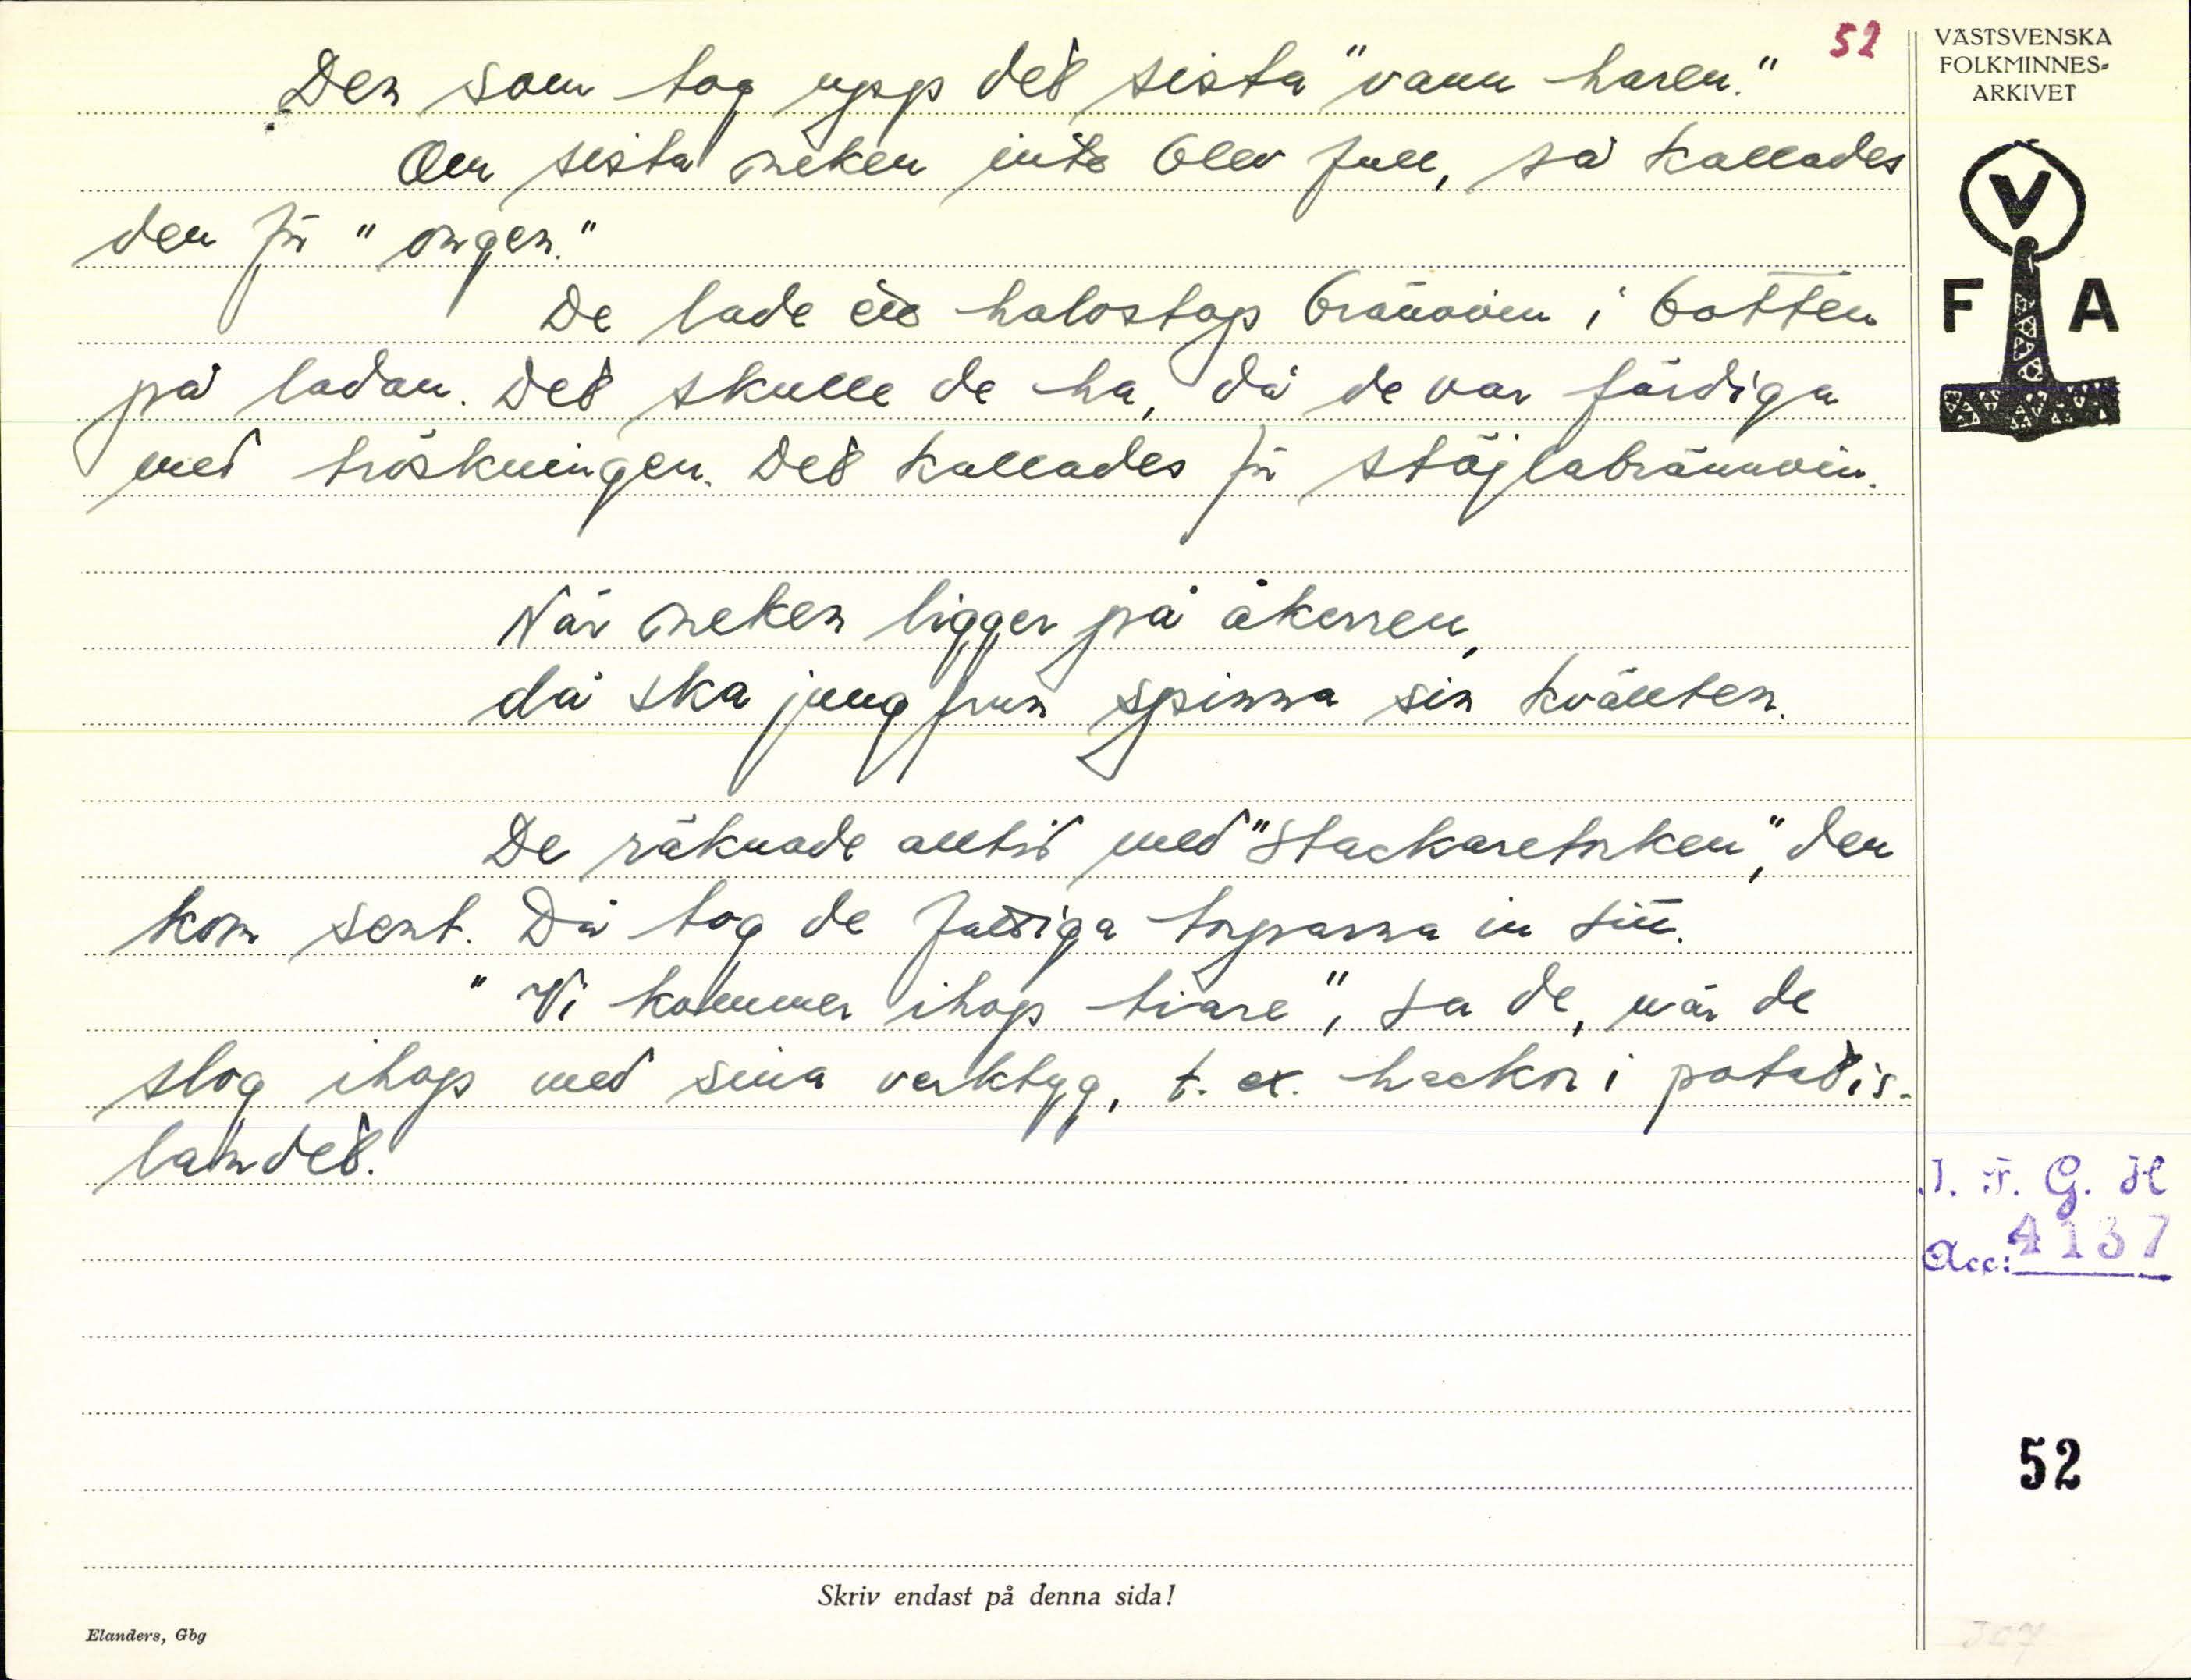 52
Den som tog upp det sista "vann haren."
Om sista neken inte blev full, så kallades
den för "ongen."
De lade ett halvstop brännvin i botten
på ladan. Det skulle de ha, då de var färdiga
med tröskningen. Det kallades för stöjlabrännvin.
När neken ligger på åkerren,
då ska jungfrun spinna sin kvällten.
De räknade alltid med "stackaretorken", den
kom sent. Då tog de fattiga torparna in sitt.
"Vi kommer ihop tiare", sa de, när de
slog ihop med sina verktyg, t. ex. hackor i potatis-
landet.
VÄSTSVENSKA
FOLKMINNES-
ARKIVET
V
F A
I. F. G. H
Acc: 4137
52
Skriv endast på denna sida!
Elanders, Gbg